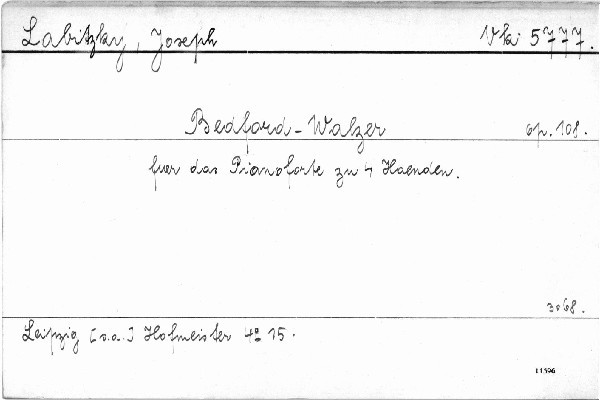 Labitzky, Joseph Vk 5777.
Bedford-Walzer op. 108.
fuer das Pianoforte zu 4 Haenden.
3068.
Leipzig [s.a.] Hofmeister 4º 15.
11596